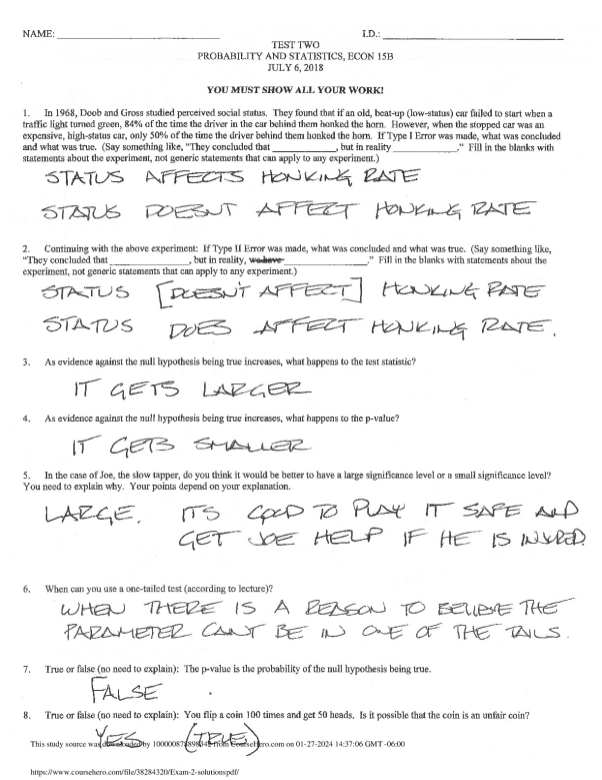 NAME: I.D.:
TEST TWO
PROBABILITY AND STATISTICS, ECON 15B
JULY 6, 2018
YOU MUST SHOW ALL YOUR WORK!
1. In 1968, Doob and Gross studied perceived social status. They found that if an old, beat-up (low-status) car failed to start when a
traffic light turned green, 84% of the time the driver in the car behind them honked the horn. However, when the stopped car was an
expensive, high-status car, only 50% of the time the driver behind them honked the horn. If Type I Error was made, what was concluded
and what was true. (Say something like, "They concluded that ____________, but in reality ____________." Fill in the blanks with
statements about the experiment, not generic statements that can apply to any experiment.)
STATUS AFFECTS HONKING RATE
STATUS DOESNT AFFECT HONKING RATE
2. Continuing with the above experiment: If Type II Error was made, what was concluded and what was true. (Say something like,
"They concluded that ____________, but in reality, we have ____________." Fill in the blanks with statements about the
experiment, not generic statements that can apply to any experiment.)
STATUS [DOESN'T AFFECT] HONKING RATE
STATUS DOES AFFECT HONKING RATE.
3. As evidence against the null hypothesis being true increases, what happens to the test statistic?
IT GETS LARGER
4. As evidence against the null hypothesis being true increases, what happens to the p-value?
IT GETS SMALLER
5. In the case of Joe, the slow tapper, do you think it would be better to have a large significance level or a small significance level?
You need to explain why. Your points depend on your explanation.
LARGE. ITS GOOD TO PLAY IT SAFE AND
GET JOE HELP IF HE IS INJURED
6. When can you use a one-tailed test (according to lecture)?
WHEN THERE IS A REASON TO BELIEVE THE
PARAMETER CANT BE IN ONE OF THE TAILS.
7. True or false (no need to explain): The p-value is the probability of the null hypothesis being true.
FALSE
8. True or false (no need to explain): You flip a coin 100 times and get 50 heads. Is it possible that the coin is an unfair coin?
YES (TRUE)
This study source was downloaded by from CourseHero.com on 01-27-2024 14:37:06 GMT -06:00
https://www.coursehero.com/file/38284320/Exam-2-solutionspdf/